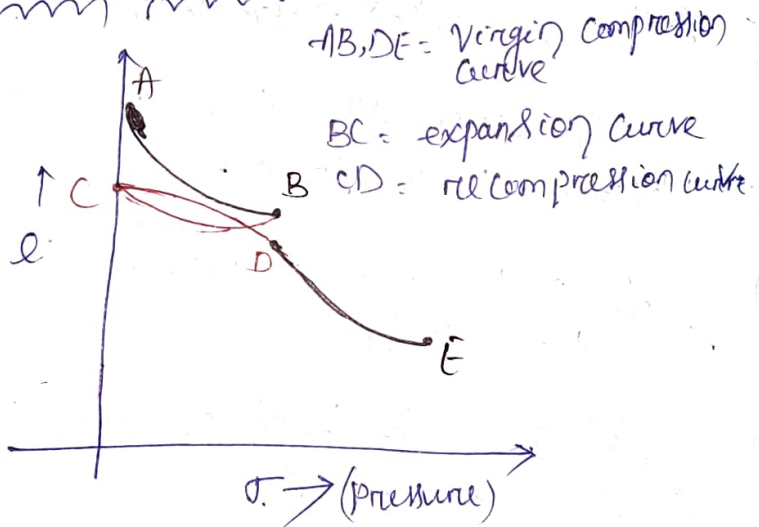 AB,DE = Virgin Compression
Curve
A
BC = expansion Curve
C
B
CD = recompression curve
↑
e
D
E
σ → (Pressure)